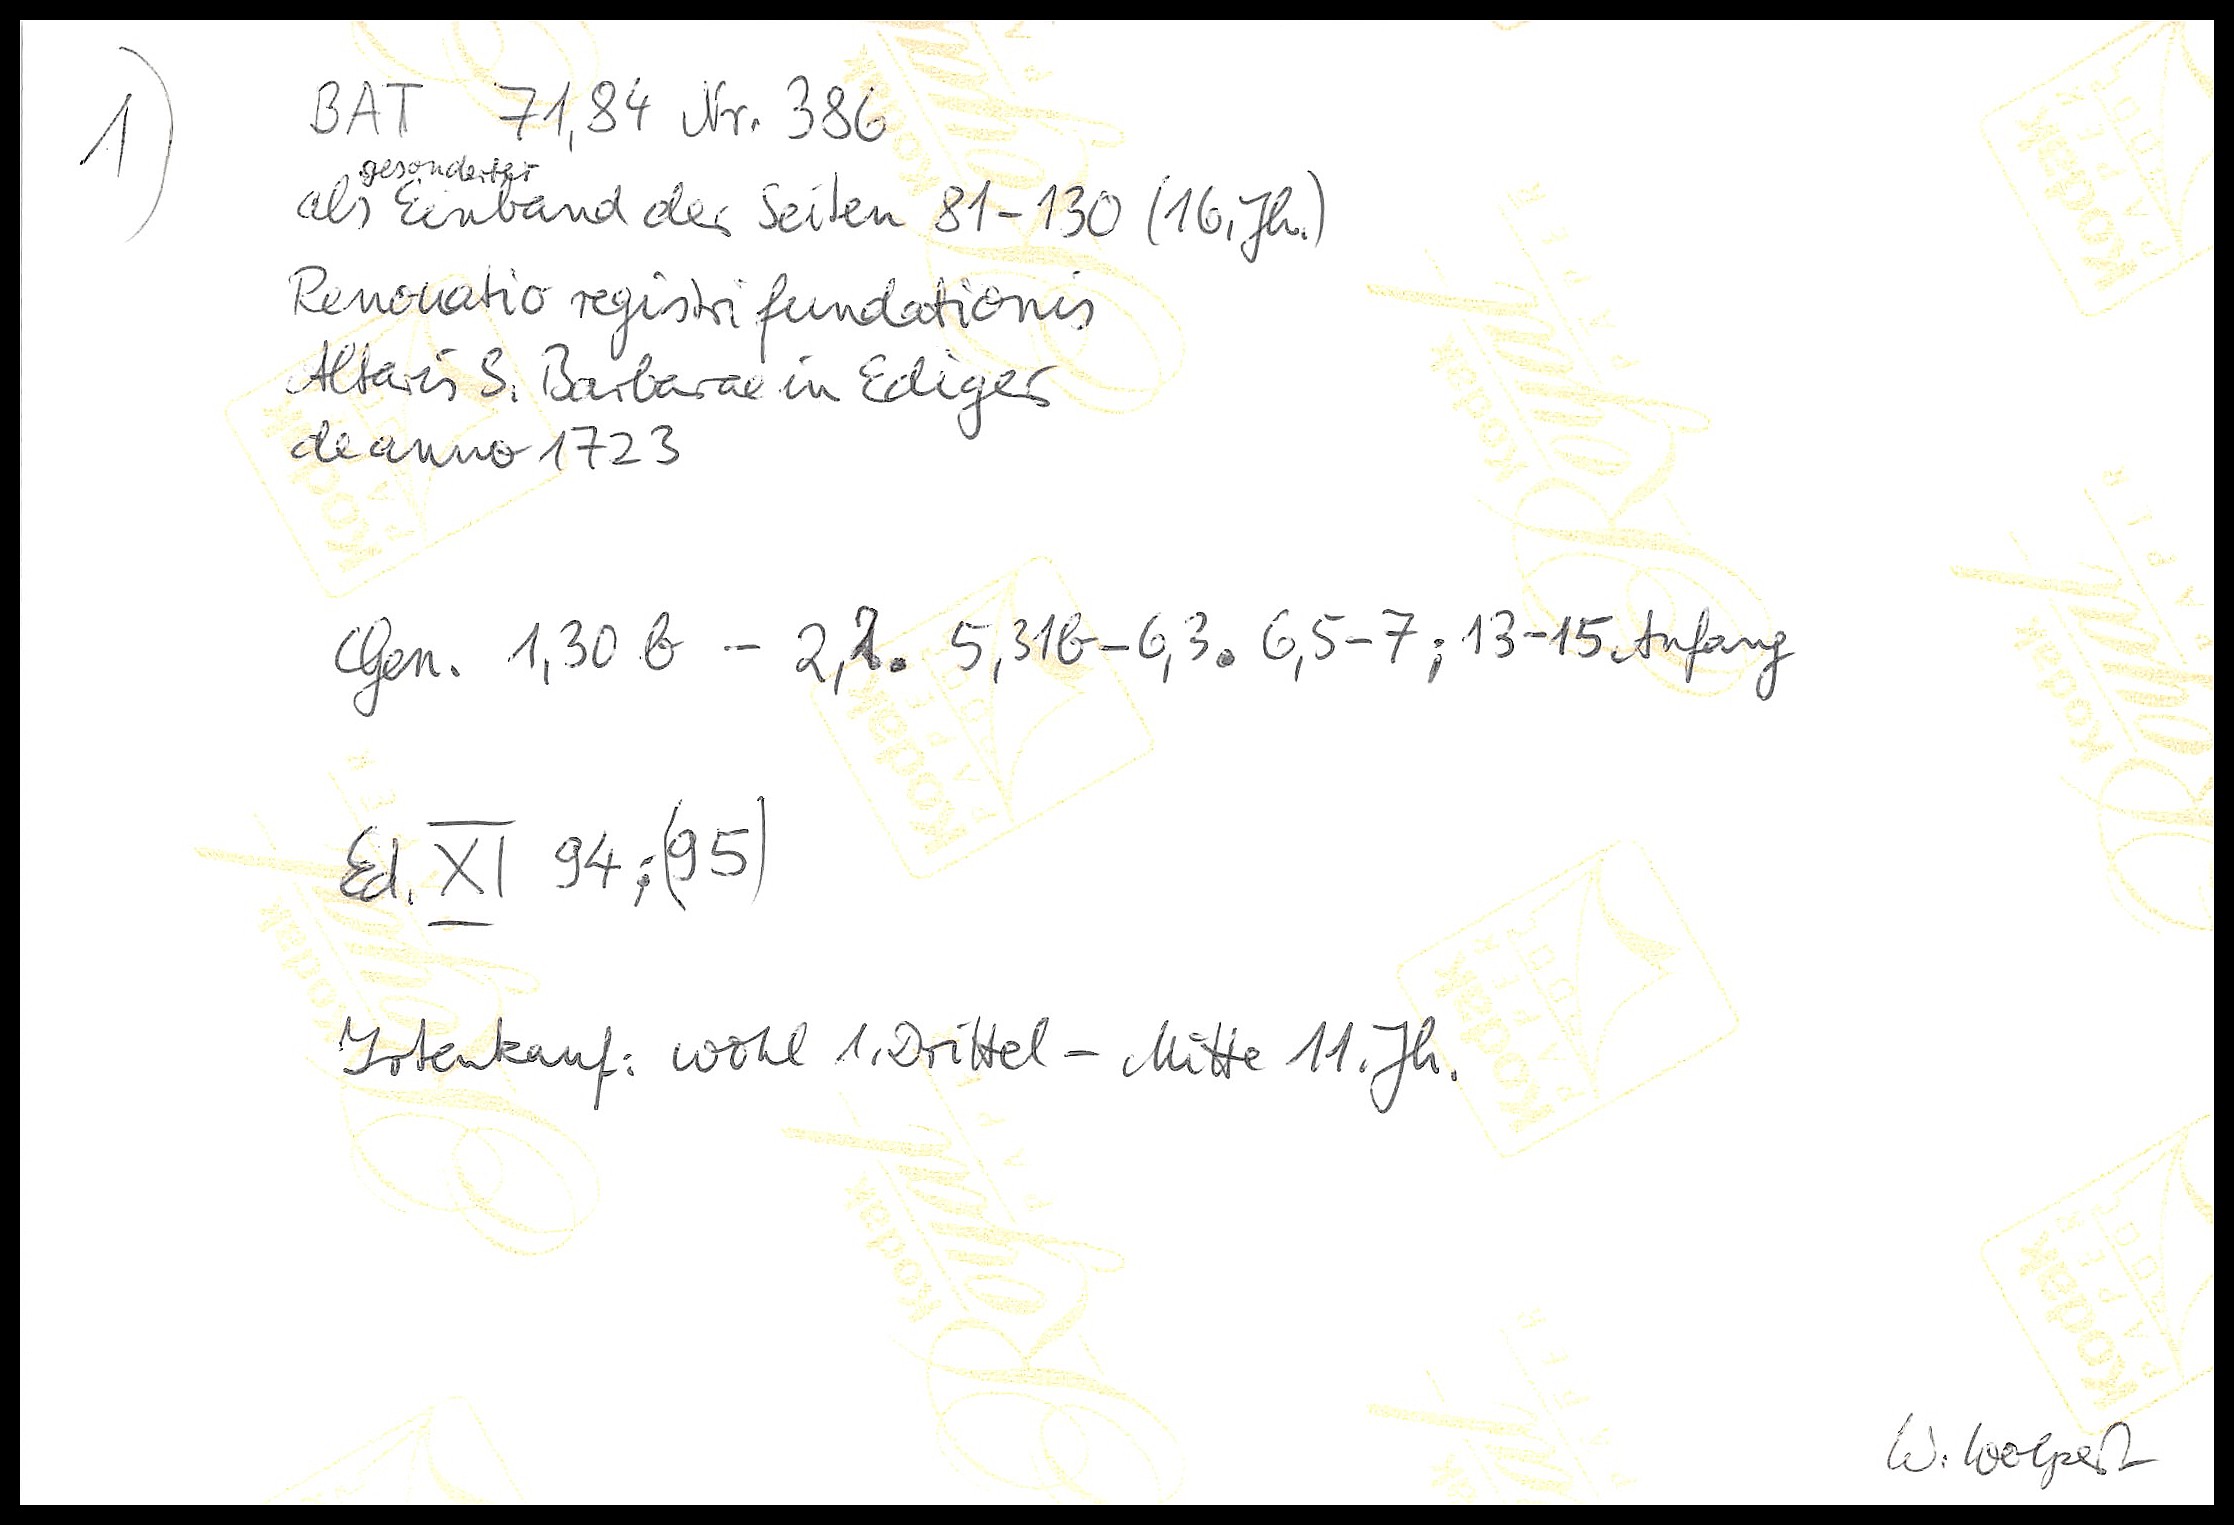 1) BAT 71,84 Nr. 386
gesonderter
als Einband der Seiten 81-130 (16. Jh.)
Renovatio registri fundationis
Altaris S. Barbarae in Ediger
de anno 1723
Gen. 1,30 b - 2,2. 5,31b-6,3. 6,5-7; 13-15 Anfang
Ed. XI 94; (95)
wohl 1. Drittel - Mitte 11. Jh.
W. Wolpert